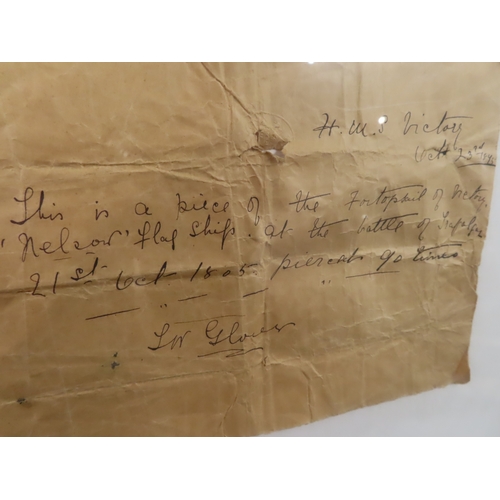 H.M.S Victory
Oct 23rd
This is a piece of the Foretopsail of Victory
'Nelson' flag ship. at the battle of Trafalgar
21st Oct 1805 pierced 90 times
Glover